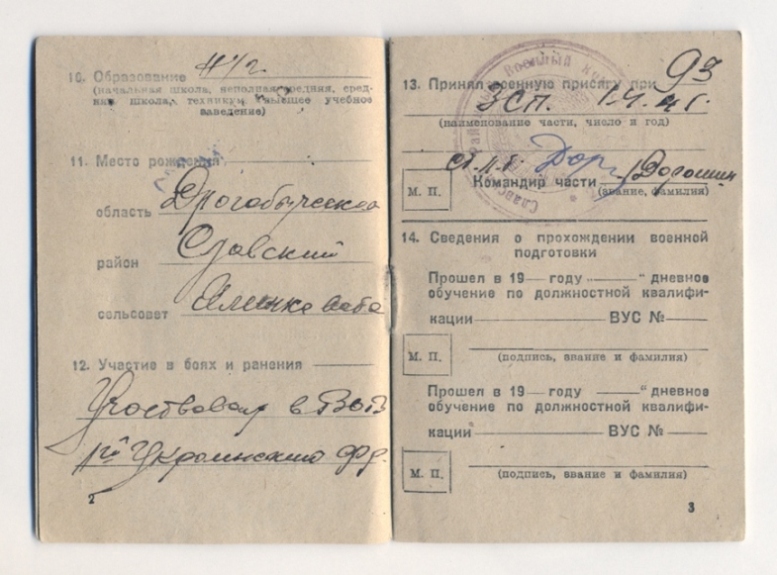 10. Образование
(начальная школа, неполная средняя, сред-
няя школа, техникум, высшее учебное
заведение)
11. Место рождения
область Дрогобычская
район Славский
сельсовет
12. Участие в боях и ранения
Участвовал в ВОВ
1й Украинский фр.
2
13. Принял военную присягу при 93
ЗСП.
(наименование части, число и год)
М. П.
Командир части Дорошин
(звание, фамилия)
14. Сведения о прохождении военной
подготовки
Прошел в 19— году „——" дневное
обучение по должностной квалифи-
кации ——— ВУС № ———
М. П.
(подпись, звание и фамилия)
Прошел в 19— году ——" дневное
обучение по должностной квалифи-
кации ——— ВУС № ———
М. П.
(подпись, звание и фамилия)
3